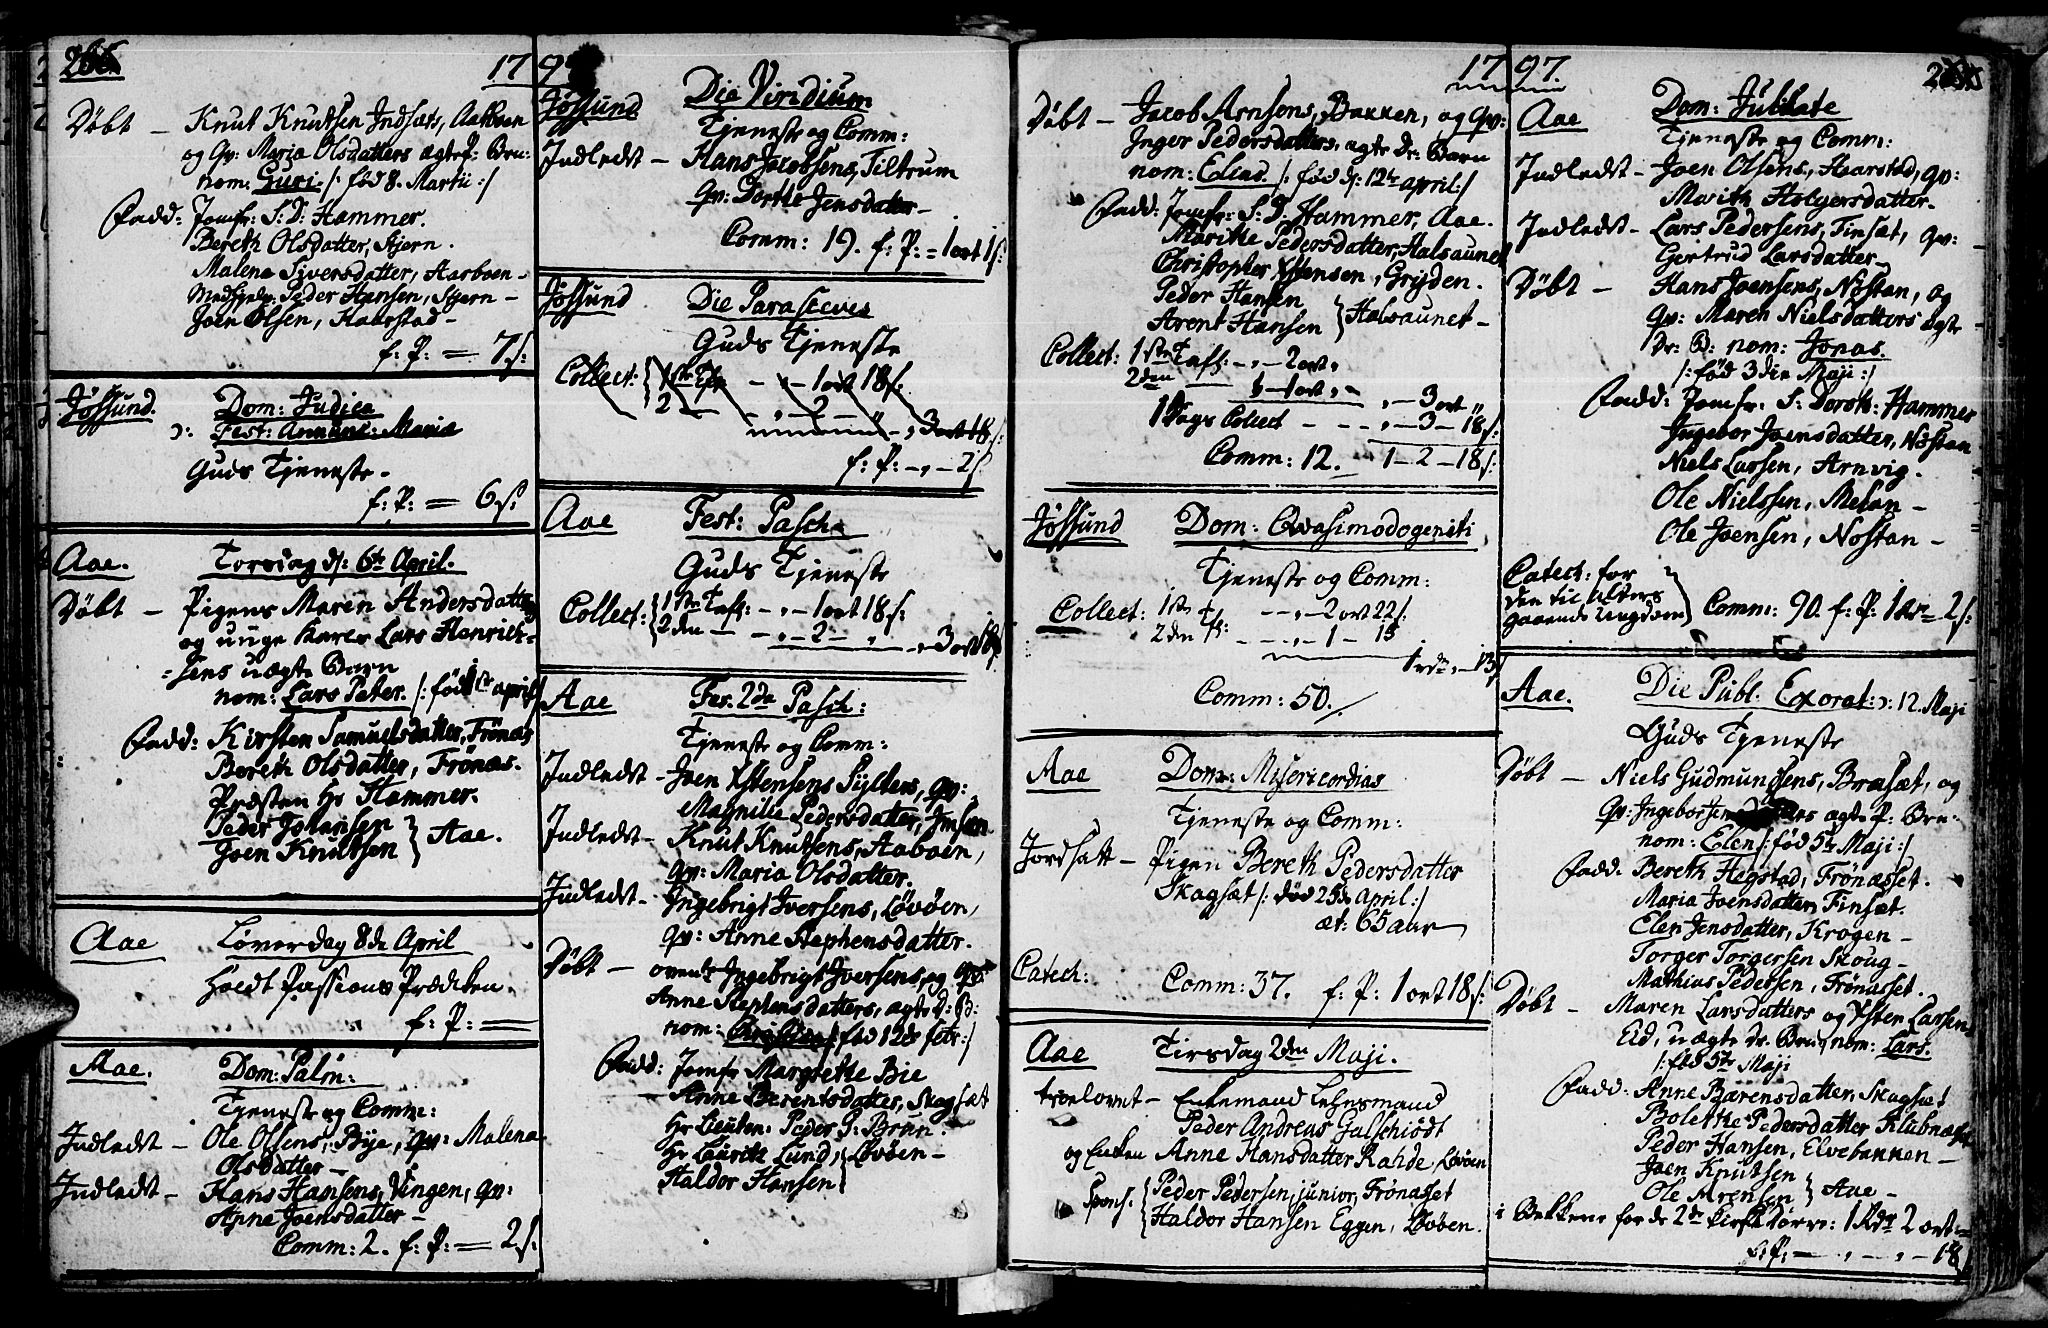 1797
Døbt – Knut Knutsen Indsæts, Aaboen
og Qv: Maria Olsdatters ægtef: Bn:
nom: Guri. /: fød 8. Martii :/
Fadd: Jomfr: S: D: Hammer.
Bereth Olsdatter, Stjern.
Malena Siversdatter, Aasboen –
Medhjelp: Peder Hansen, Stjern –
Joen Olsen, Haarstad –
f: P: = 7 s:
Jøssund. Dom: Judica
ɔ: Fest: Annunc: Mariæ
Guds Tjeneste –
f: P: = 6 s:
Aae. Torsdag d: 6te April.
Døbt – Pigens Maren Andersdatters
og unge Karls Lars Henrich-
sens uægte Barn
nom: Lars Peter. /: fød 1ste april :/
Fadd: Kirsten Samuelsdatter, Frönæs
Bereth Olsdatter, Frönæs.
Præsten Hr Hammer.
Peder Johansen
Joen Knutsen } Aae.
Aae Løverdag 8de April
Holdt Passions Prædiken.
f: P: =
Aae. Dom: Palm:
Tjeneste og Comm:
Indledt – Ole Olsens, Bye, qv: Malena
Olsdatter –
Indledt – Hans Hansens, Vingen, qv:
Anne Joensdatter –
Comm: 2. f: P: = 2 s:
Jøssund Die Viridium
Tjeneste og Comm:
Indledt – Hans Jacobsens, Tiltrum
qv: Dorthe Jensdatter –
Comm: 19. f: P: = 1 ort 1 s:
Jøssund Die Parasceves
Guds Tjeneste
Collect: { 1ste Tfl – „ – 1 ort 18 s:
2 – – „ – 2 – „ – „ 3 ort 18 s:
f: P: – „ – 2 s
Aae Fest: Pasch:
Guds Tjeneste
Collect: { 1ste Tafl: – „ – 1 ort 18 s:
2den – – „ – 2 – „ – „ 3 ort 18 s
Aae Fes. 2da Pasch:
Tjeneste og Comm:
Indledt – Joen Ystensens Sylters, qv:
Magnille Pedersdatter,
Indledt – Knut Knutsens, Aaboen,
qv: Maria Olsdatter.
Indledt – Ingebrigt Iversens, Løvöen,
qv: Anne Stephensdatter.
Døbt – ovenst: Ingebrigt Iversens, og qv:
Anne Stephensdatters, ægte D: B:
nom: /: fød 12de febr :/
Fadd: Jomfr Margrethe Bie
Anne Berentsdatter, Skagsæt
Hr Lieuten: Peder P: Brun.
Hr Laurits Lund, } Løvöen –
Haldor Hansen
1797.
Døbt – Jacob Arnsens, Bakken, og qv:
Inger Pedersdatters, ægte Dr: Barn
nom: Elias. /: fød d: 12te april :/
Fadd: Jomfr: S: D: Hammer, Aae.
Marithe Pedersdatter, Halsaunet
Christopher Ystensen, Gryden.
Peder Hansen
Arent Hansen } Halsaunet –
Collect: 1ste Tafl: – „ – 2 ort „
2den – „ – 1 ort „ –
„ – 3 ort „
1 Dags Collect – – – „ – 3 – 18 s:
Comm: 12. 1 – 2 – 18 s:
Jøssund Dom: Qvasimodogeniti
Tjeneste og Comm:
Collect: 1ste Tf – – „ – 2 ort 22 s.
2den Tf: – – „ – 1 – 15
1 rdr „ – 13 s
Comm: 50.
Aae Dom: Misericordias
Tjeneste og Comm:
Jordsatt – Pigen Bereth Pedersdatter
Skagsæt /: død 25de April :/
æt: 65 aar
Catech: Comm: 37. f: P: 1 ort 18 s:
Aae Tirsdag 2den Maji.
troelovet – Enkemand Lehnsmand
Peder Andreas Galschiödt
og Enken Anne Hansdatter Rahde, Løvöen
Spons: { Peder Pedersen, junior, Frönæsset
Haldor Hansen Eggen, Løvöen.
Aae Dom: Jubilate
Tjeneste og Comm:
Indledt – Joen Olsens, Haarstad, qv:
Marith Holgersdatter.
Indledt – Lars Pedersens, Finsæt, qv:
Gjertrud Larsdatter –
Døbt – Hans Joensens, Nöstan, og
qv: Maren Nielsdatters ægte
Dr: B: nom: Jonas.
/: fød 3die Maji :/
Fadd: Jomfr: S: Doroth: Hammer
Ingebor Joensdatter, Nöstan
Niels Larsen, Arnvig.
Ole Nielssen, Melan –
Ole Joensen, Nöstan –
Catech: for
den til Alters
gaaende Ungdom } Comm: 90. f: P: 1 – 2 s:
Aae. Die Publ. Exorat: ɔ: 12. Maji
Guds Tjeneste
Døbt – Niels Gudmundsens, Bræsæt, og
Qv: Ingebor ægte P: Bn:
nom: Elen /: fød 5te Maji :/
Fadd. Bereth Hegstad, Frönæsset.
Maria Joensdatter, Finsæt.
Elen Jensdatter, Krogen –
Torger Torgersen Skoug –
Mathias Pedersen, Frönæsset.
Døbt – Maren Larsdatters og Ysten Larsen
Eid, uægte dr. Bn: nom: Lars.
/: fød 5te Maji
Fadd. Anne Bærensdatter, Skagsæt
Bolethe Pedersdatter Klubnæsset
Peder Hansen, Elvebakken –
Joen Knutsen
Ole Arensen } Aae –
i Bækkene for de 2de Kirkedörre: 1 Rdr 2 ort =
f: P: – „ – „ – 18 s